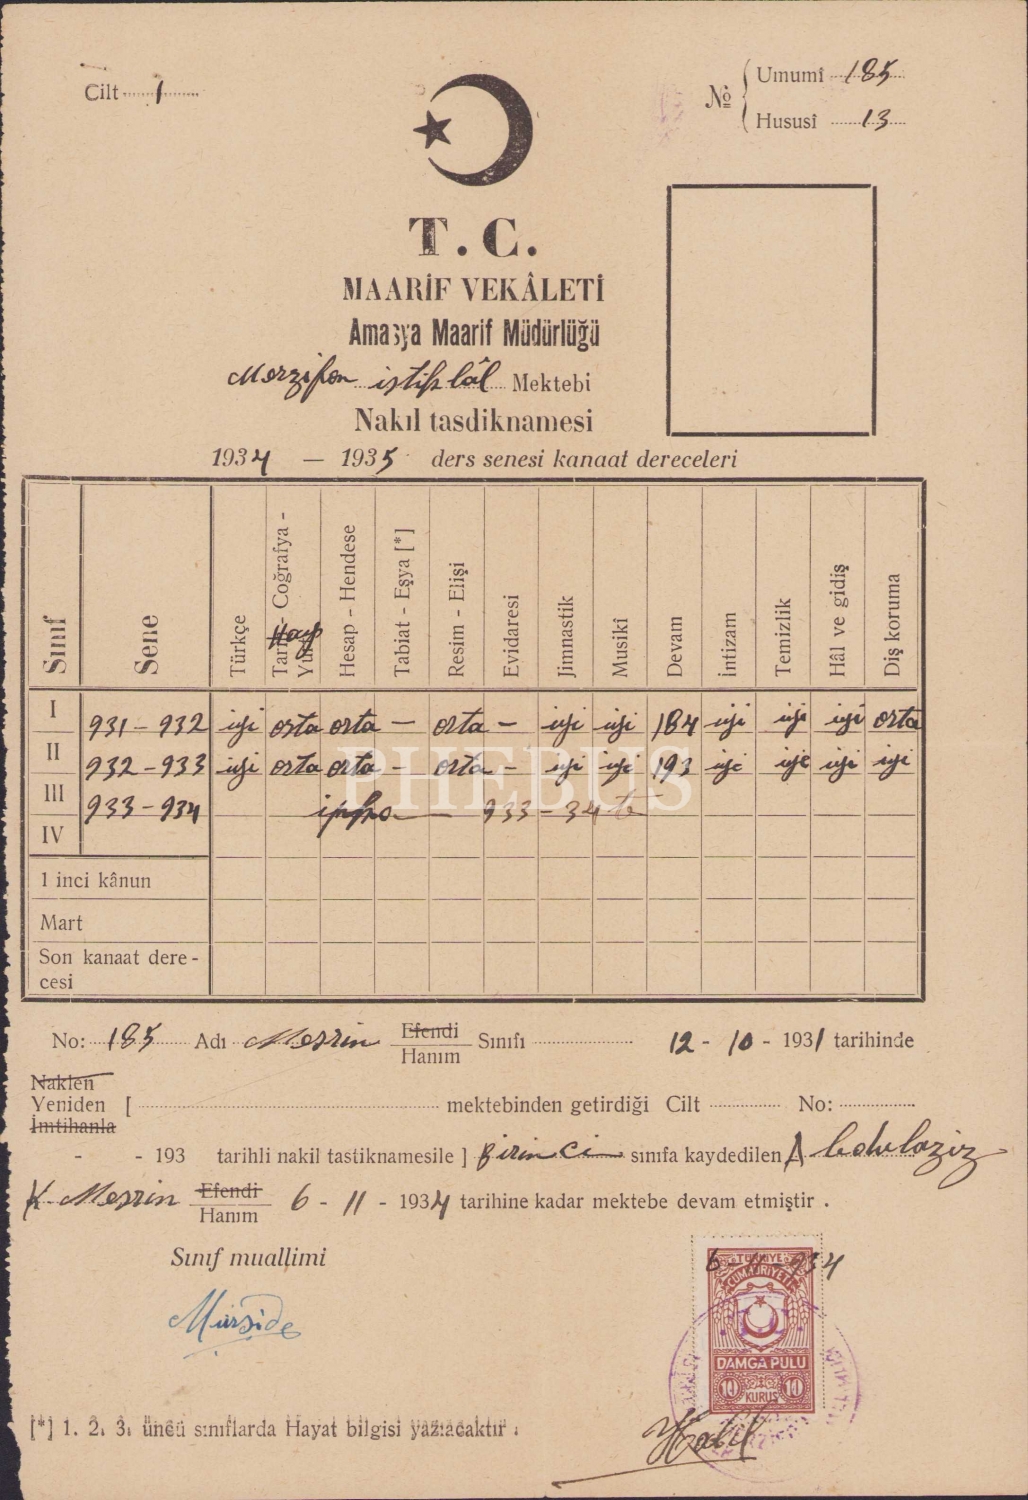 Cilt 1
No Umumî 185
Hususî 13
T. C.
MAARİF VEKÂLETİ
Amasya Maarif Müdürlüğü
Merzifon istiklâl Mektebi
Nakıl tasdiknamesi
1934 — 1935 ders senesi kanaat dereceleri
Sınıf Sene Türkçe Tarih - Coğrafya - Yurt Hesap - Hendese Tabiat - Eşya [*] Resim - Elişi Evidaresi Jimnastik Musikî Devam İntizam Temizlik Hâl ve gidiş Diş koruma
I 931 - 932 iyi orta orta — orta — iyi iyi 184 iyi iyi iyi orta
II 932 - 933 iyi orta orta - orta - iyi iyi 193 iyi iyi iyi iyi
III 933 - 934 ipka 933 - 34 te
IV
1 inci kânun
Mart
Son kanaat dere-
cesi
No: 185 Adı Efendi Hanım Sınıfı 12 - 10 - 1931 tarihinde
Naklen
Yeniden [ mektebinden getirdiği Cilt No:
İmtihanla
- - 193 tarihli nakil tastiknamesile ] Birinci sınıfa kaydedilen Abdulaziz
K. Efendi Hanım 6 - 11 - 1934 tarihine kadar mektebe devam etmiştir .
Sınıf muallimi
Mürşide
6 - 11 - 934
TÜRKİYE
CUMHURİYETİ
DAMGA PULU
10 KURUŞ 10
[*] 1. 2. 3. üncü sınıflarda Hayat bilgisi yazılacaktır .
PHEBUS